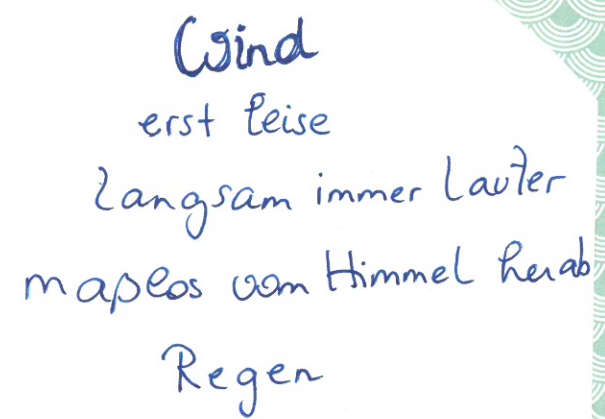 Wind
erst leise
Langsam immer Lauter
maßlos vom Himmel herab
Regen